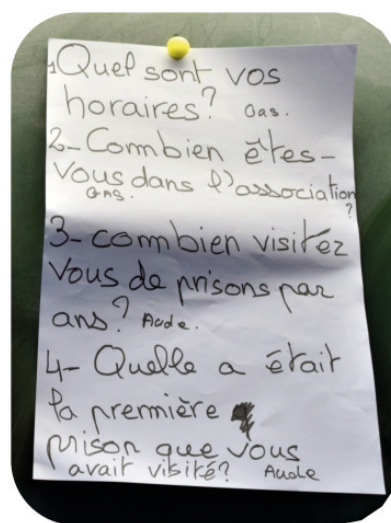 1 Quel sont vos
horaires? Gas.
2- Combien êtes-
Vous dans l'association
GAS. ?
3- combien visitez
Vous de prisons par
ans? Aude.
4- Quelle a était
la premmière
prison que vous
avait visité? Aude